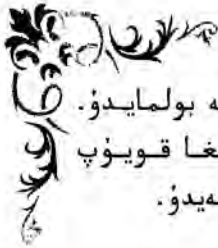 ە بولمايدۇ.
غا قويۇپ
ەيدۇ.